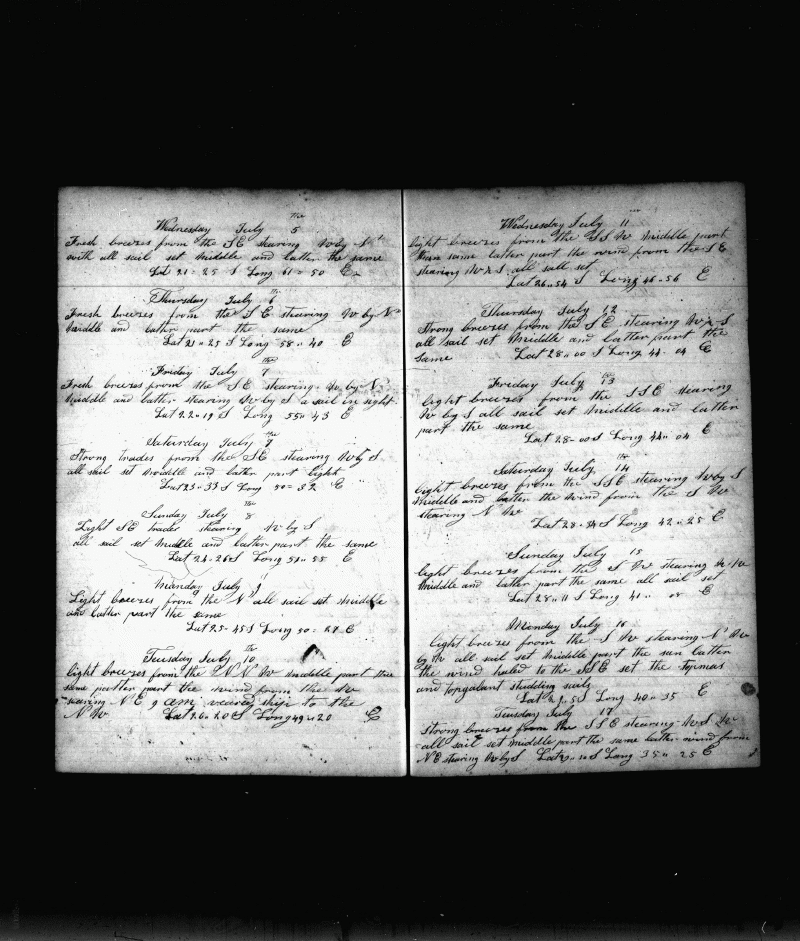 Wednesday July 5 the
Fresh breezes from the SE stearing W by N
with all sail set middle and latter the same
Lat 21=25 S Long 61=50 E
Thursday July 6 the
Fresh breezes from the SE stearing W by N
middle and latter part the same
Lat 21=25 S Long 58=40 E
Friday July 7 the
Fresh breezes from the SE stearing W by N
middle and latter stearing W by S a sail in sight
Lat 22=19 S Long 55=43 E
Saturday July the
Strong trades from the SE stearing W by S
all sail set middle and latter part light
Lat 23=33 S Long 50=32 E
Sunday July 8 the
Light SE trades stearing W by S
all sail set middle and latter part the same
Lat 24=26 S Long 51=55 E
Monday July
Light breezes from the N all sail set middle
and latter part the same
Lat 25=45 S Long 50=27 E
Tuesday July 10 the
light breezes from the NNW middle part the
same latter part the wind from the W
stearing NE 9 am weard ship to the
NW Lat 26=20 S Long 49=20 E
Wednesday July 11 the
light breezes from the SSW middle part
the same latter part the wind from the SE
stearing W & S all sail set
Lat 26=54 S Long 46=56 E
Thursday July 12
Strong breezes from the SE stearing W & S
all sail set middle and latter part the
same Lat 28=00 S Long 44=04 E
Friday July 13 the
light breezes from the SSE stearing
W by S all sail set middle and latter
part the same
Lat 28=00 S Long 44=04 E
Saturday July 14 the
light breezes from the SSE stearing W by S
middle and latter the wind from the S W
stearing N W
Lat 28=24 S Long 42=25 E
Sunday July 15
light breezes from the S W stearing W N W
middle and latter part the same all sail set
Lat 28=11 S Long 41=08 E
Monday July 16
light breezes from the S W stearing N W
by W all sail set middle part the sam latter
the wind haled to the SSE set the
and topgalant studding sails
Long 40=35 E
Tuesday July 17
Strong breezes from the SSE stearing W S W
all sail set middle part the same latter wind from
NE stearing W by S Long 35=25 E